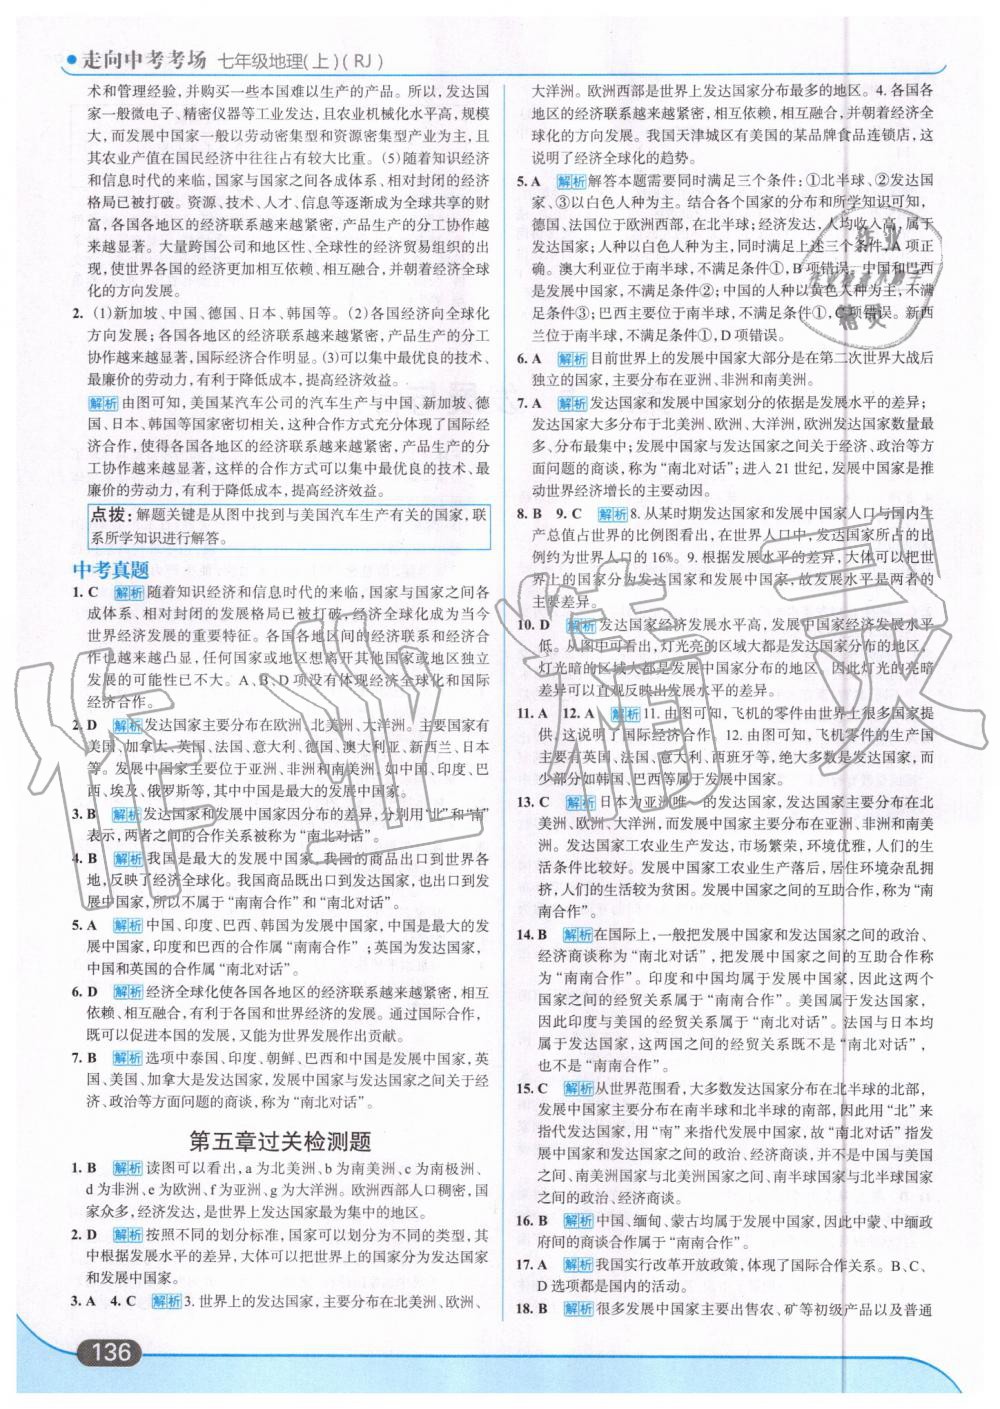 走向中考考场 七年级地理(上)(RJ)
术和管理经验,并购买一些本国难以生产的产品。所以,发达国
家一般微电子、精密仪器等工业发达,且农业机械化水平高,规模
大,而发展中国家一般以劳动密集型和资源密集型产业为主,且
其农业产值在国民经济中往往占有较大比重。(5)随着知识经济
和信息时代的来临,国家与国家之间各成体系、相对封闭的经济
格局已被打破。资源、技术、人才、信息等逐渐成为全球共享的财
富,各国各地区的经济联系越来越紧密,产品生产的分工协作越
来越显著。大量跨国公司和地区性、全球性的经济贸易组织的出
现,使世界各国的经济更加相互依赖、相互融合,并朝着经济全球
化的方向发展。
2. (1)新加坡、中国、德国、日本、韩国等。(2)各国经济向全球化
方向发展;各国各地区的经济联系越来越紧密,产品生产的分工
协作越来越显著,国际经济合作明显。(3)可以集中最优良的技术、
最廉价的劳动力,有利于降低成本,提高经济效益。
解析 由图可知,美国某汽车公司的汽车生产与中国、新加坡、德
国、日本、韩国等国家密切相关,这种合作方式充分体现了国际经
济合作,使得各国各地区的经济联系越来越紧密,产品生产的分
工协作越来越显著,这样的合作方式可以集中最优良的技术、最
廉价的劳动力,有利于降低成本,提高经济效益。
点拨:解题关键是从图中找到与美国汽车生产有关的国家,联
系所学知识进行解答。
中考真题
1. C 解析 随着知识经济和信息时代的来临,国家与国家之间各
成体系、相对封闭的发展格局已被打破,经济全球化成为当今
世界经济发展的重要特征。各国各地区间的经济联系和经济合
作也越来越凸显,任何国家或地区想离开其他国家或地区独立
发展的可能性已不大。A、B、D项没有体现经济全球化和国际
经济合作。
2. D 解析 发达国家主要分布在欧洲、北美洲、大洋洲。主要国家有
美国、加拿大、英国、法国、意大利、德国、澳大利亚、新西兰、日本
等。发展中国家主要位于亚洲、非洲和南美洲,如中国、印度、巴
西、埃及、俄罗斯等,其中中国是最大的发展中国家。
3. B 解析 发达国家和发展中国家因分布的差异,分别用“北”和“南”
表示,两者之间的合作关系被称为“南北对话”。
4. B 解析 我国是最大的发展中国家,我国的商品出口到世界各
地,反映了经济全球化。我国商品既出口到发达国家,也出口到发展
中国家,所以不属于“南南合作”和“南北对话”。
5. A 解析 中国、印度、巴西、韩国为发展中国家,中国是最大的发
展中国家,印度和巴西的合作属“南南合作”;英国为发达国家,
中国和英国的合作属“南北对话”。
6. D 解析 经济全球化使各国各地区的经济联系越来越紧密,相互
依赖、相互融合,有利于各国和世界经济的发展。通过国际合作,
既可以促进本国的发展,又能为世界发展作出贡献。
7. B 解析 选项中泰国、印度、朝鲜、巴西和中国是发展中国家,英
国、美国、加拿大是发达国家,发展中国家与发达国家之间关于经
济、政治等方面问题的商谈,称为“南北对话”。
第五章过关检测题
1. B 解析 读图可以看出,a为北美洲、b为南美洲、c为南极洲、
d为非洲、e为欧洲、f为亚洲、g为大洋洲。欧洲西部人口稠密,国
家众多,经济发达,是世界上发达国家最为集中的地区。
2. D 解析 按照不同的划分标准,国家可以划分为不同的类型,其
中根据发展水平的差异,大体可以把世界上的国家分为发达国家
和发展中国家。
3. A 4. C 解析 3. 世界上的发达国家,主要分布在北美洲、欧洲、
大洋洲。欧洲西部是世界上发达国家分布最多的地区。4. 各国各
地区的经济联系越来越紧密,相互依赖、相互融合,并朝着经济全
球化的方向发展。我国天津城区有美国的某品牌食品连锁店,这
说明了经济全球化的趋势。
5. A 解析 解答本题需要同时满足三个条件:①北半球、②发达国
家、③以白色人种为主。结合各个国家的分布和所学知识可知,
德国、法国位于欧洲西部,在北半球;经济发达,人均收入高,属于
发达国家;人种以白色人种为主,同时满足上述三个条件,A项正
确。澳大利亚位于南半球,不满足条件①,B项错误。中国和巴西
是发展中国家,不满足条件②;中国的人种以黄色人种为主,不满
足条件③;巴西主要位于南半球,不满足条件①,C项错误。新西
兰位于南半球,不满足条件①,D项错误。
6. A 解析 目前世界上的发展中国家大部分是在第二次世界大战后
独立的国家,主要分布在亚洲、非洲和南美洲。
7. A 解析 发达国家和发展中国家划分的依据是发展水平的差异;
发达国家大多分布于北美洲、欧洲、大洋洲,欧洲发达国家数量最
多、分布最集中;发展中国家与发达国家之间关于经济、政治等方
面问题的商谈,称为“南北对话”;进入21世纪,发展中国家是推
动世界经济增长的主要动因。
8. B 9. C 解析 8. 从某时期发达国家和发展中国家人口与国内生
产总值占世界的比例图看出,在世界人口中,发达国家所占的比
例约为世界人口的16%。9. 根据发展水平的差异,大体可以把世
界上的国家分为发达国家和发展中国家,故发展水平是两者的
主要差异。
10. D 解析 发达国家经济发展水平高,发展中国家经济发展水平
低。从图中可以看到,灯光亮的区域大都是发达国家分布的地区,
灯光暗的区域大都是发展中国家分布的地区,因此灯光的亮暗
差异可以直观反映出发展水平的差异。
11. A 12. A 解析 11. 由图可知,飞机的零件由世界上很多国家提
供,这说明了国际经济合作。12. 由图可知,飞机零件的生产国
主要有英国、法国、意大利、西班牙等,绝大多数是发达国家,而
少部分如韩国、巴西等属于发展中国家。
13. C 解析 日本为亚洲唯一的发达国家,发达国家主要分布在北
美洲、欧洲、大洋洲,而发展中国家主要分布在亚洲、非洲和南美
洲。发达国家工农业生产发达,市场繁荣,环境优雅,人们的生
活条件比较好。发展中国家工农业生产落后,居住环境杂乱拥
挤,人们的生活较为贫困。发展中国家之间的互助合作,称为“南
南合作”。
14. B 解析 在国际上,一般把发展中国家和发达国家之间的政治、
经济商谈称为“南北对话”,把发展中国家之间的互助合作称
为“南南合作”。印度和中国均属于发展中国家,因此这两个
国家之间的经贸关系属于“南南合作”。美国属于发达国家,
因此印度与美国的经贸关系属于“南北对话”。法国与日本均
属于发达国家,这两国之间的经贸关系既不是“南北对话”,
也不是“南南合作”。
15. C 解析 从世界范围看,大多数发达国家分布在北半球的北部,
发展中国家主要分布在南半球和北半球的南部,因此用“北”来
指代发达国家,用“南”来指代发展中国家,故“南北对话”指
发展中国家与发达国家之间的政治、经济商谈,并不是中国与美国
之间、南美洲国家与北美洲国家之间、南半球国家与北半球国家
之间的政治、经济商谈。
16. B 解析 中国、缅甸、蒙古均属于发展中国家,因此中蒙、中缅政
府间的商谈合作属于“南南合作”。
17. A 解析 我国实行改革开放政策,体现了国际合作关系。B、C、
D选项都是国内的活动。
18. B 解析 很多发展中国家主要出售农、矿等初级产品以及普通
136
作业
精灵
作业精灵